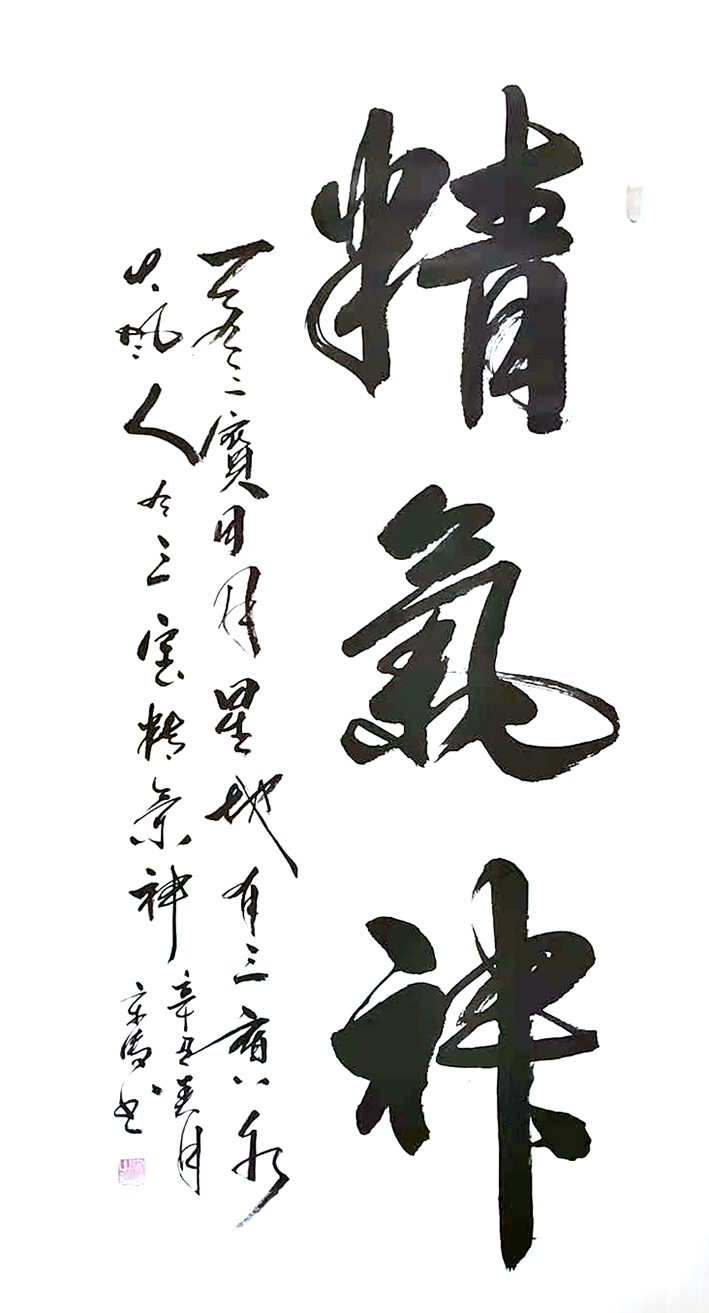 精氣神
天有三寶日月星地有三寶水
火風人有三宝精氣神
辛丑夏月
京生书